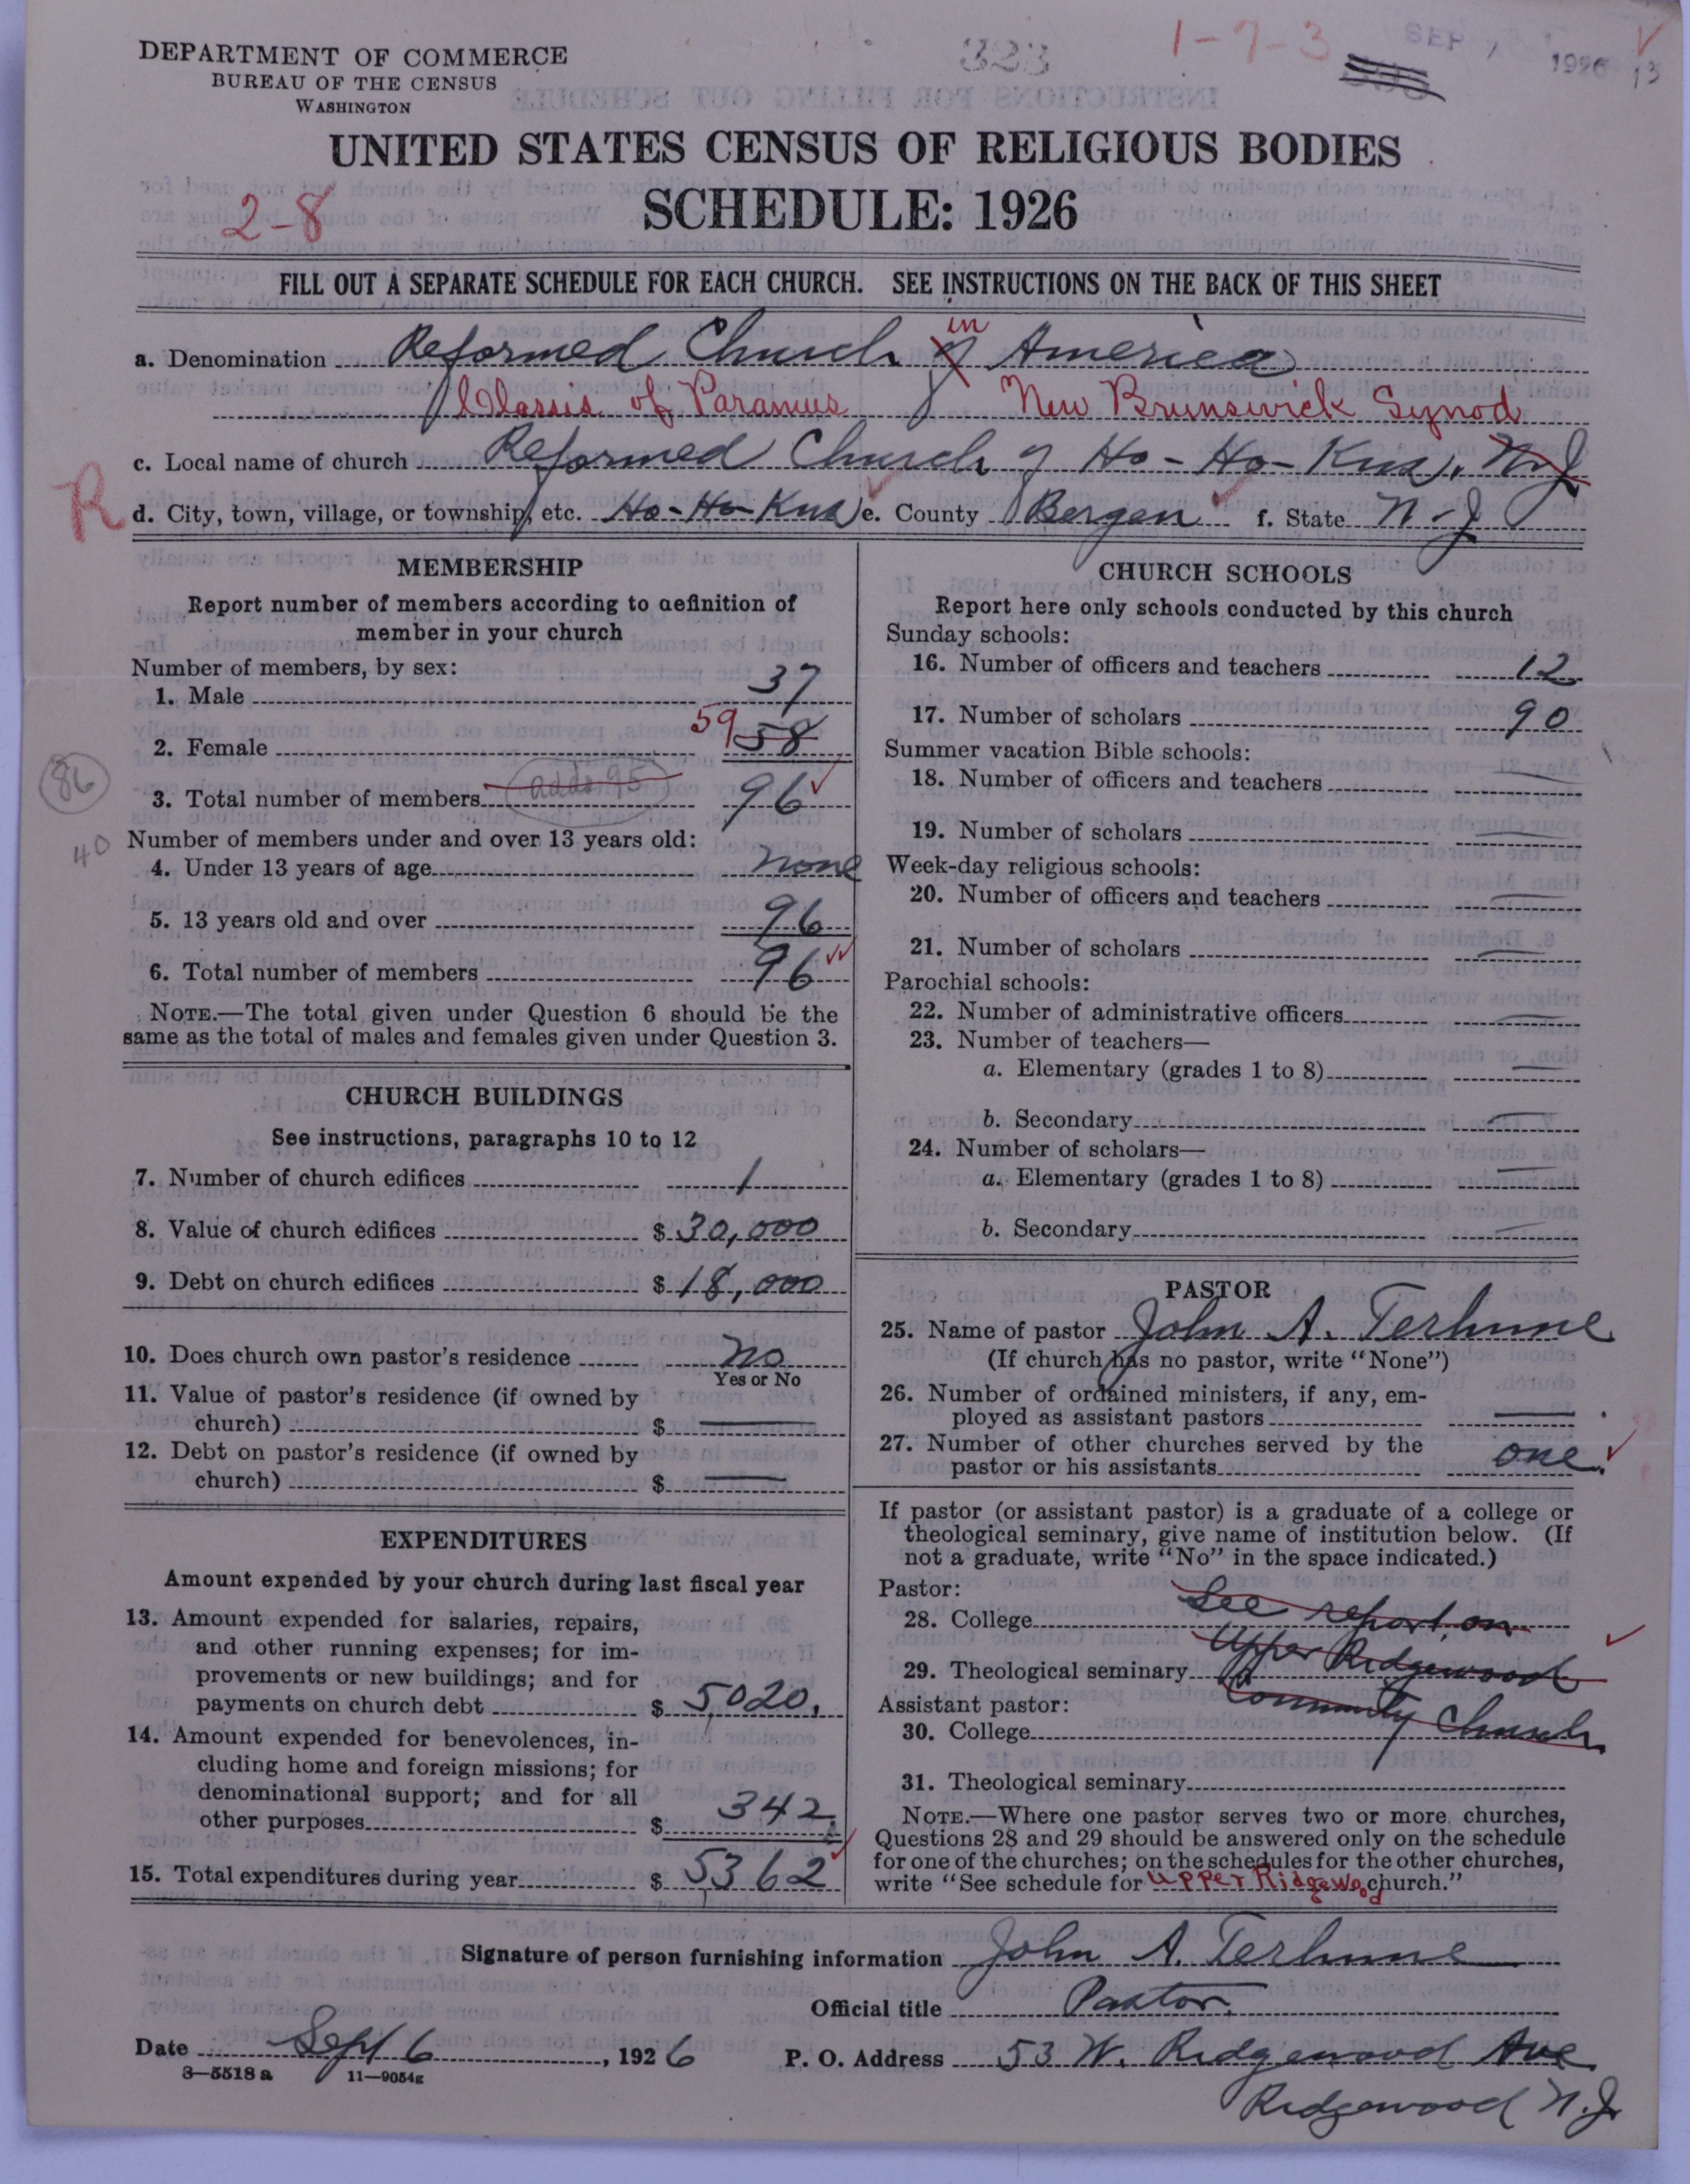 DEPARTMENT OF COMMERCE
BUREAU OF THE CENSUS
WASHINGTON
323
1-7-3
SEP 7 1926
13
UNITED STATES CENSUS OF RELIGIOUS BODIES
2-8
SCHEDULE: 1926
FILL OUT A SEPARATE SCHEDULE FOR EACH CHURCH. SEE INSTRUCTIONS ON THE BACK OF THIS SHEET
a. Denomination Reformed Church of in America
Classis of Paramus New Brunswick Synod
c. Local name of church Reformed Church of Ho-Ho-Kus, N.J
R
d. City, town, village, or township, etc. Ho-Ho-Kus e. County Bergen f. State N-J
MEMBERSHIP
Report number of members according to definition of
member in your church
Number of members, by sex:
1. Male 37
2. Female 59 58
86
3. Total number of members adds 95 96
40
Number of members under and over 13 years old:
4. Under 13 years of age none
5. 13 years old and over 96
6. Total number of members 96
NOTE.—The total given under Question 6 should be the
same as the total of males and females given under Question 3.
CHURCH BUILDINGS
See instructions, paragraphs 10 to 12
7. Number of church edifices 1
8. Value of church edifices $ 30,000
9. Debt on church edifices $ 18,000
10. Does church own pastor's residence No
Yes or No
11. Value of pastor's residence (if owned by
church) $
12. Debt on pastor's residence (if owned by
church) $
EXPENDITURES
Amount expended by your church during last fiscal year
13. Amount expended for salaries, repairs,
and other running expenses; for im-
provements or new buildings; and for
payments on church debt $ 5,020.
14. Amount expended for benevolences, in-
cluding home and foreign missions; for
denominational support; and for all
other purposes $ 342
15. Total expenditures during year $ 5362
CHURCH SCHOOLS
Report here only schools conducted by this church
Sunday schools:
16. Number of officers and teachers 12
17. Number of scholars 90
Summer vacation Bible schools:
18. Number of officers and teachers
19. Number of scholars
Week-day religious schools:
20. Number of officers and teachers
21. Number of scholars
Parochial schools:
22. Number of administrative officers
23. Number of teachers—
a. Elementary (grades 1 to 8)
b. Secondary
24. Number of scholars—
a. Elementary (grades 1 to 8)
b. Secondary
PASTOR
25. Name of pastor John A. Terhune
(If church has no pastor, write "None")
26. Number of ordained ministers, if any, em-
ployed as assistant pastors
27. Number of other churches served by the
pastor or his assistants one
If pastor (or assistant pastor) is a graduate of a college or
theological seminary, give name of institution below. (If
not a graduate, write "No" in the space indicated.)
Pastor:
28. College See report on
29. Theological seminary Upper Ridgewood
Assistant pastor: Community Church
30. College
31. Theological seminary
NOTE.—Where one pastor serves two or more churches,
Questions 28 and 29 should be answered only on the schedule
for one of the churches; on the schedules for the other churches,
write "See schedule for Upper Ridgewood church."
Signature of person furnishing information John A. Terhune
Official title Pastor
Date Sept 6, 1926 P. O. Address 53 W. Ridgewood Ave
3—5518 a 11—9054g
Ridgewood N.J